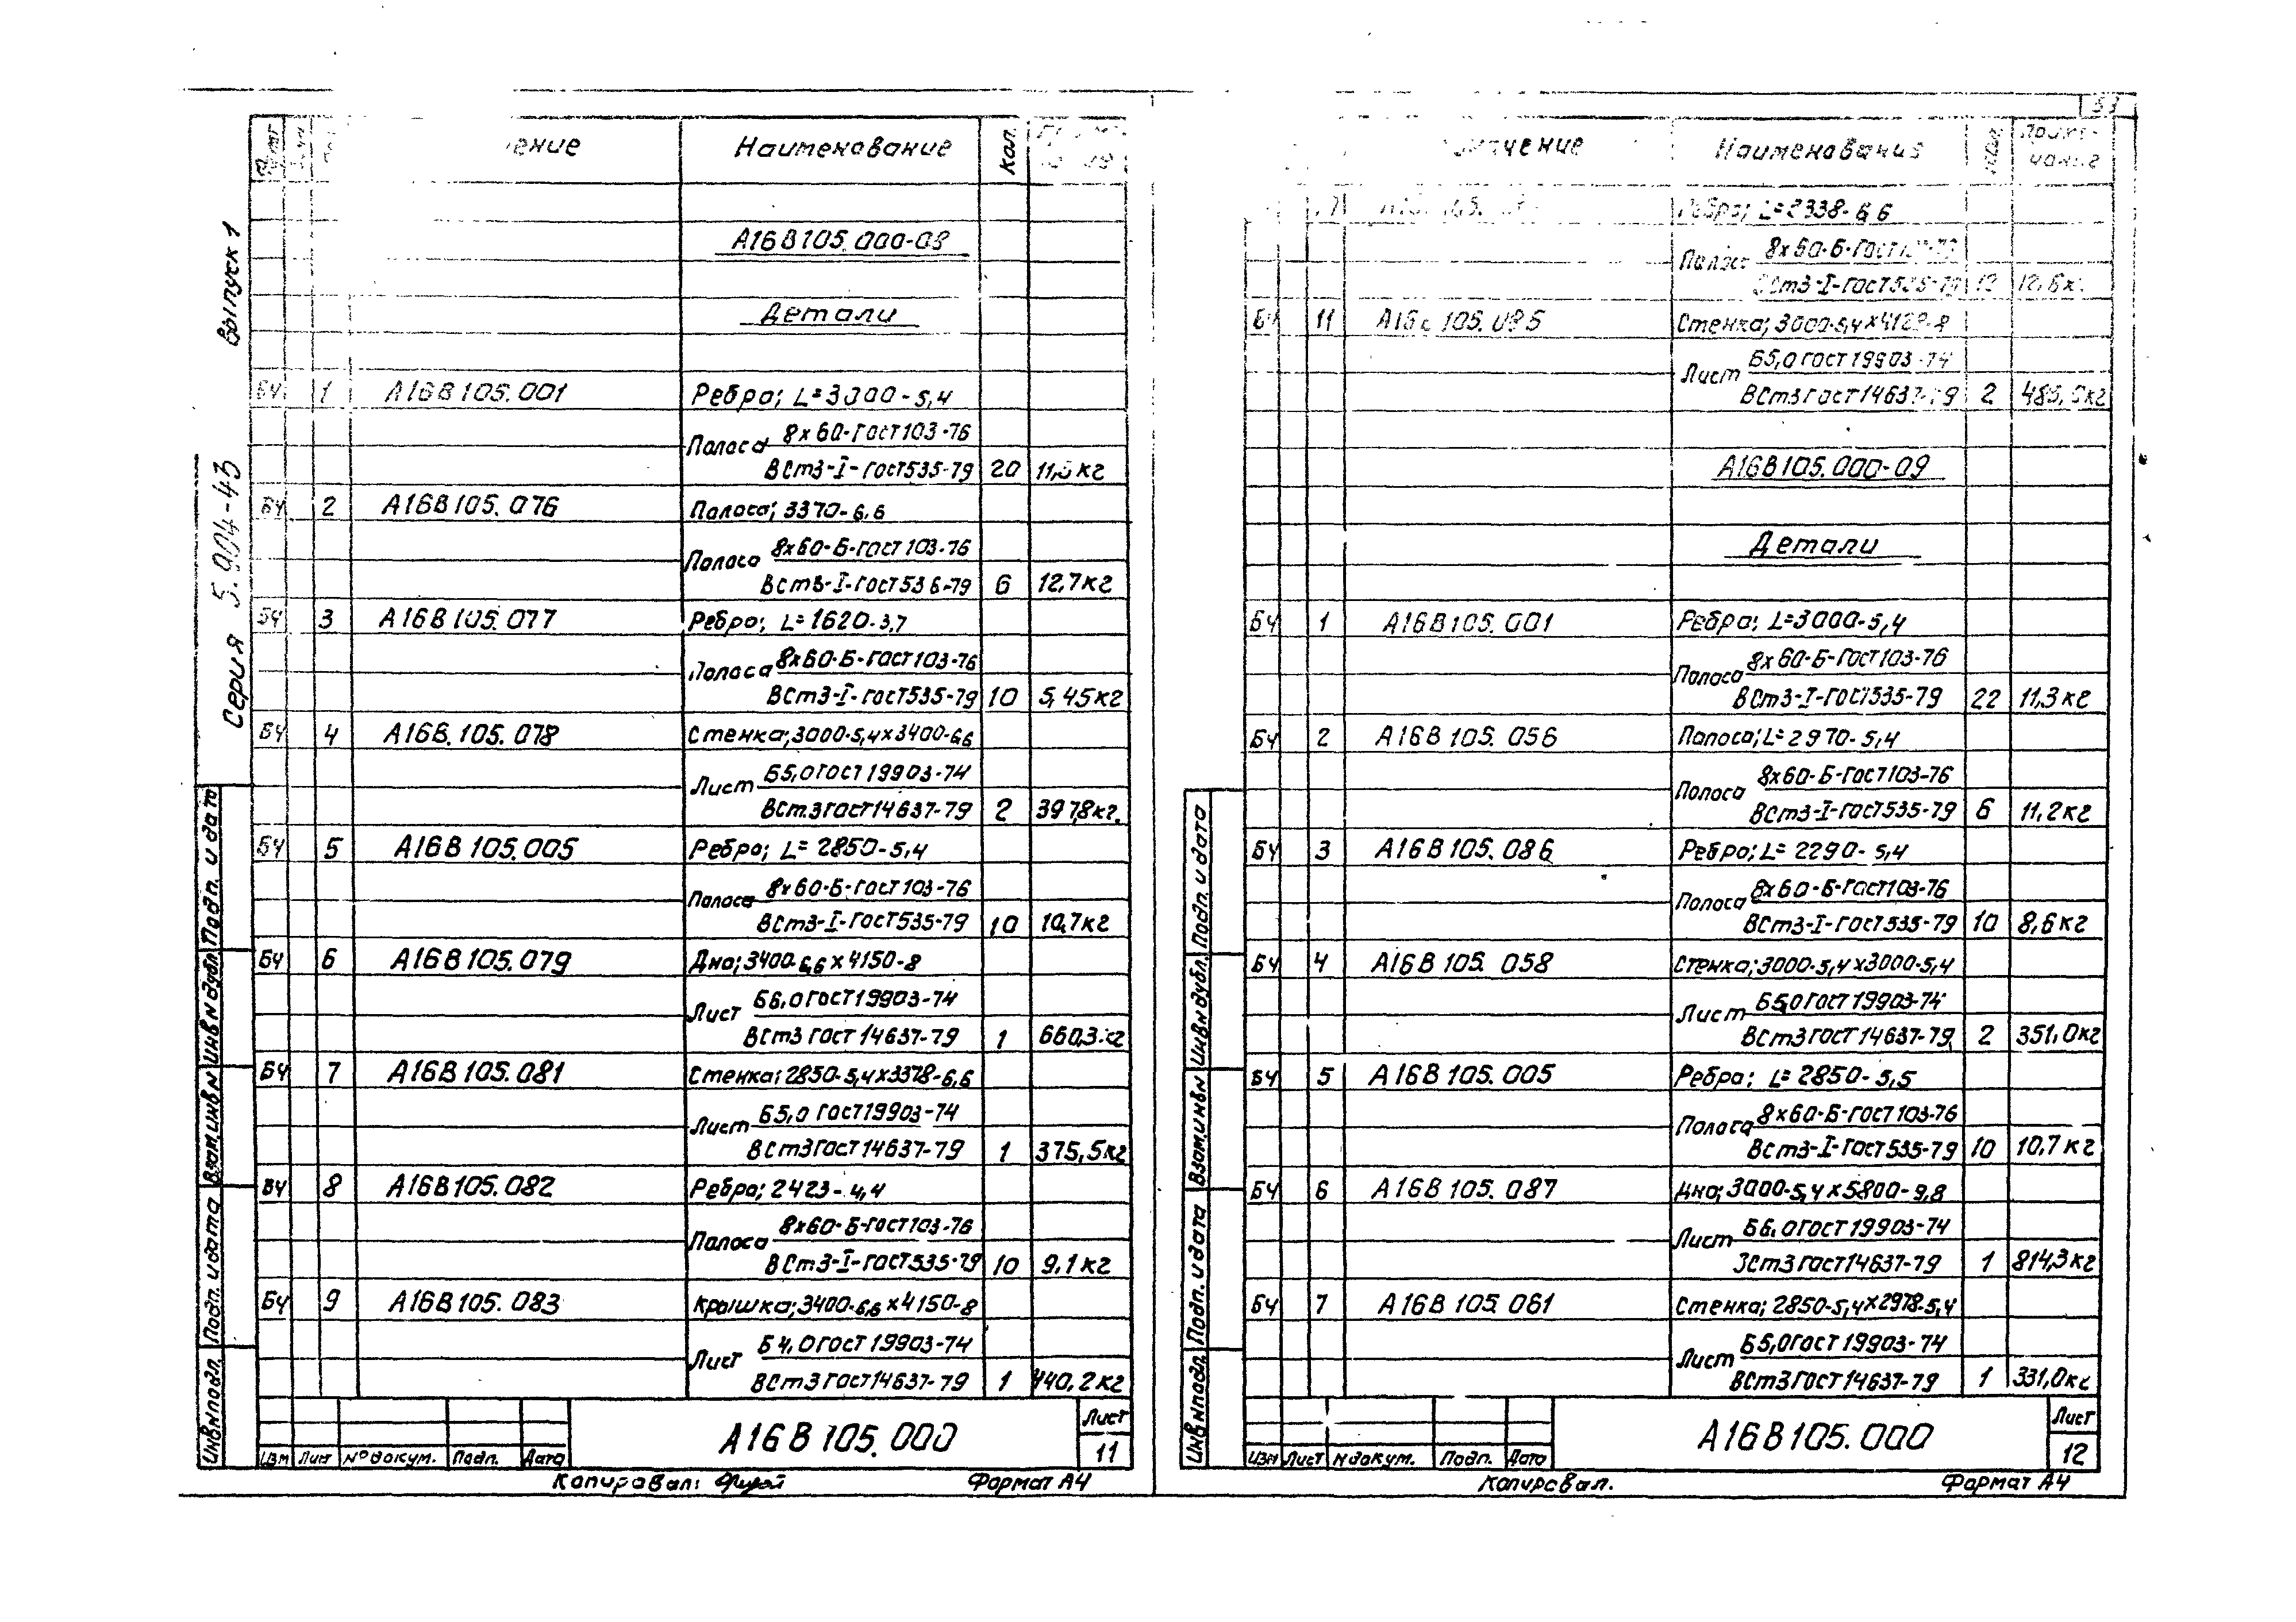 Выпуск 1
Серия 5.904-43
Наименование Кол.
А16В105.000-08
Детали
БЧ 1 А16В105.001 Ребро; L=3000-5,4
Полоса 8х60-ГОСТ103-76
ВСт3-I-ГОСТ535-79 20 11,3кг
БЧ 2 А16В105.076 Полоса; 3370-6,6
Полоса 8х60-Б-ГОСТ103-76
ВСт3-I-ГОСТ535-79 6 12,7кг
БЧ 3 А16В105.077 Ребро; L=1620-3,7
Полоса 8х60-Б-ГОСТ103-76
ВСт3-I-ГОСТ535-79 10 5,45кг
БЧ 4 А16В.105.078 Стенка; 3000-5,4х3400-6,6
Лист Б5,0ГОСТ19903-74
ВСт3ГОСТ14637-79 2 397,8кг.
БЧ 5 А16В105.005 Ребро; L=2850-5,4
Полоса 8х60-Б-ГОСТ103-76
ВСт3-I-ГОСТ535-79 10 10,7кг
БЧ 6 А16В105.079 Дно; 3400-6,6х4150-8
Лист Б6,0ГОСТ19903-74
ВСт3 ГОСТ 14637-79 1 660,3кг
БЧ 7 А16В105.081 Стенка; 2850-5,4х3378-6,6
Лист Б5,0 ГОСТ19903-74
ВСт3ГОСТ14637-79 1 375,5кг
БЧ 8 А16В105.082 Ребро; 2423-4,4
Полоса 8х60-Б-ГОСТ103-76
ВСт3-I-ГОСТ535-79 10 9,1кг
БЧ 9 А16В105.083 Крышка; 3400-6,6х4150-8
Лист Б4,0ГОСТ19903-74
ВСт3ГОСТ14637-79 1 440,2кг
Подп. и дата
Инв N дубл.
Взам. инв N
Подп. и дата
Инв N подл.
Изм Лист N° докум. Подп. Дата
А16В105.000
Лист
11
Копировал: Формат А4
Наименование Приме-
чание
Ребро; L=2338-6,6
Полоса 8х60-Б-ГОСТ
ВСт3-I-ГОСТ535-79 12,6кг
БЧ 11 Стенка; 3000-5,4х4128-8
Лист Б5,0ГОСТ19903-74
ВСт3ГОСТ14637-79 2
А16В105.000-09
Детали
БЧ 1 А16В105.001 Ребро; L=3000-5,4
Полоса 8х60-Б-ГОСТ103-76
ВСт3-I-ГОСТ535-79 22 11,3кг
БЧ 2 А16В105.056 Полоса; L=2970-5,4
Полоса 8х60-Б-ГОСТ103-76
ВСт3-I-ГОСТ535-79 6 11,2кг
БЧ 3 А16В105.086 Ребро; L=2290-5,4
Полоса 8х60-Б-ГОСТ103-76
ВСт3-I-ГОСТ535-79 10 8,6кг
БЧ 4 А16В105.058 Стенка; 3000-5,4х3000-5,4
Лист Б5,0ГОСТ19903-74
ВСт3ГОСТ14637-79 2 351,0кг
БЧ 5 А16В105.005 Ребро; L=2850-5,5
Полоса 8х60-Б-ГОСТ103-76
ВСт3-I-ГОСТ535-79 10 10,7кг
БЧ 6 А16В105.087 Дно; 3000-5,4х5800-9,8
Лист Б6,0ГОСТ19903-74
ВСт3ГОСТ14637-79 1 814,3кг
БЧ 7 А16В105.061 Стенка; 2850-5,4х2978-5,4
Лист Б5,0ГОСТ19903-74
ВСт3ГОСТ14637-79 1 331,0кг
Подп. и дата
Инв N дубл.
Взам. инв N
Подп. и дата
Инв N подл.
Изм Лист N докум. Подп. Дата
А16В105.000
Лист
12
Копировал. Формат А4